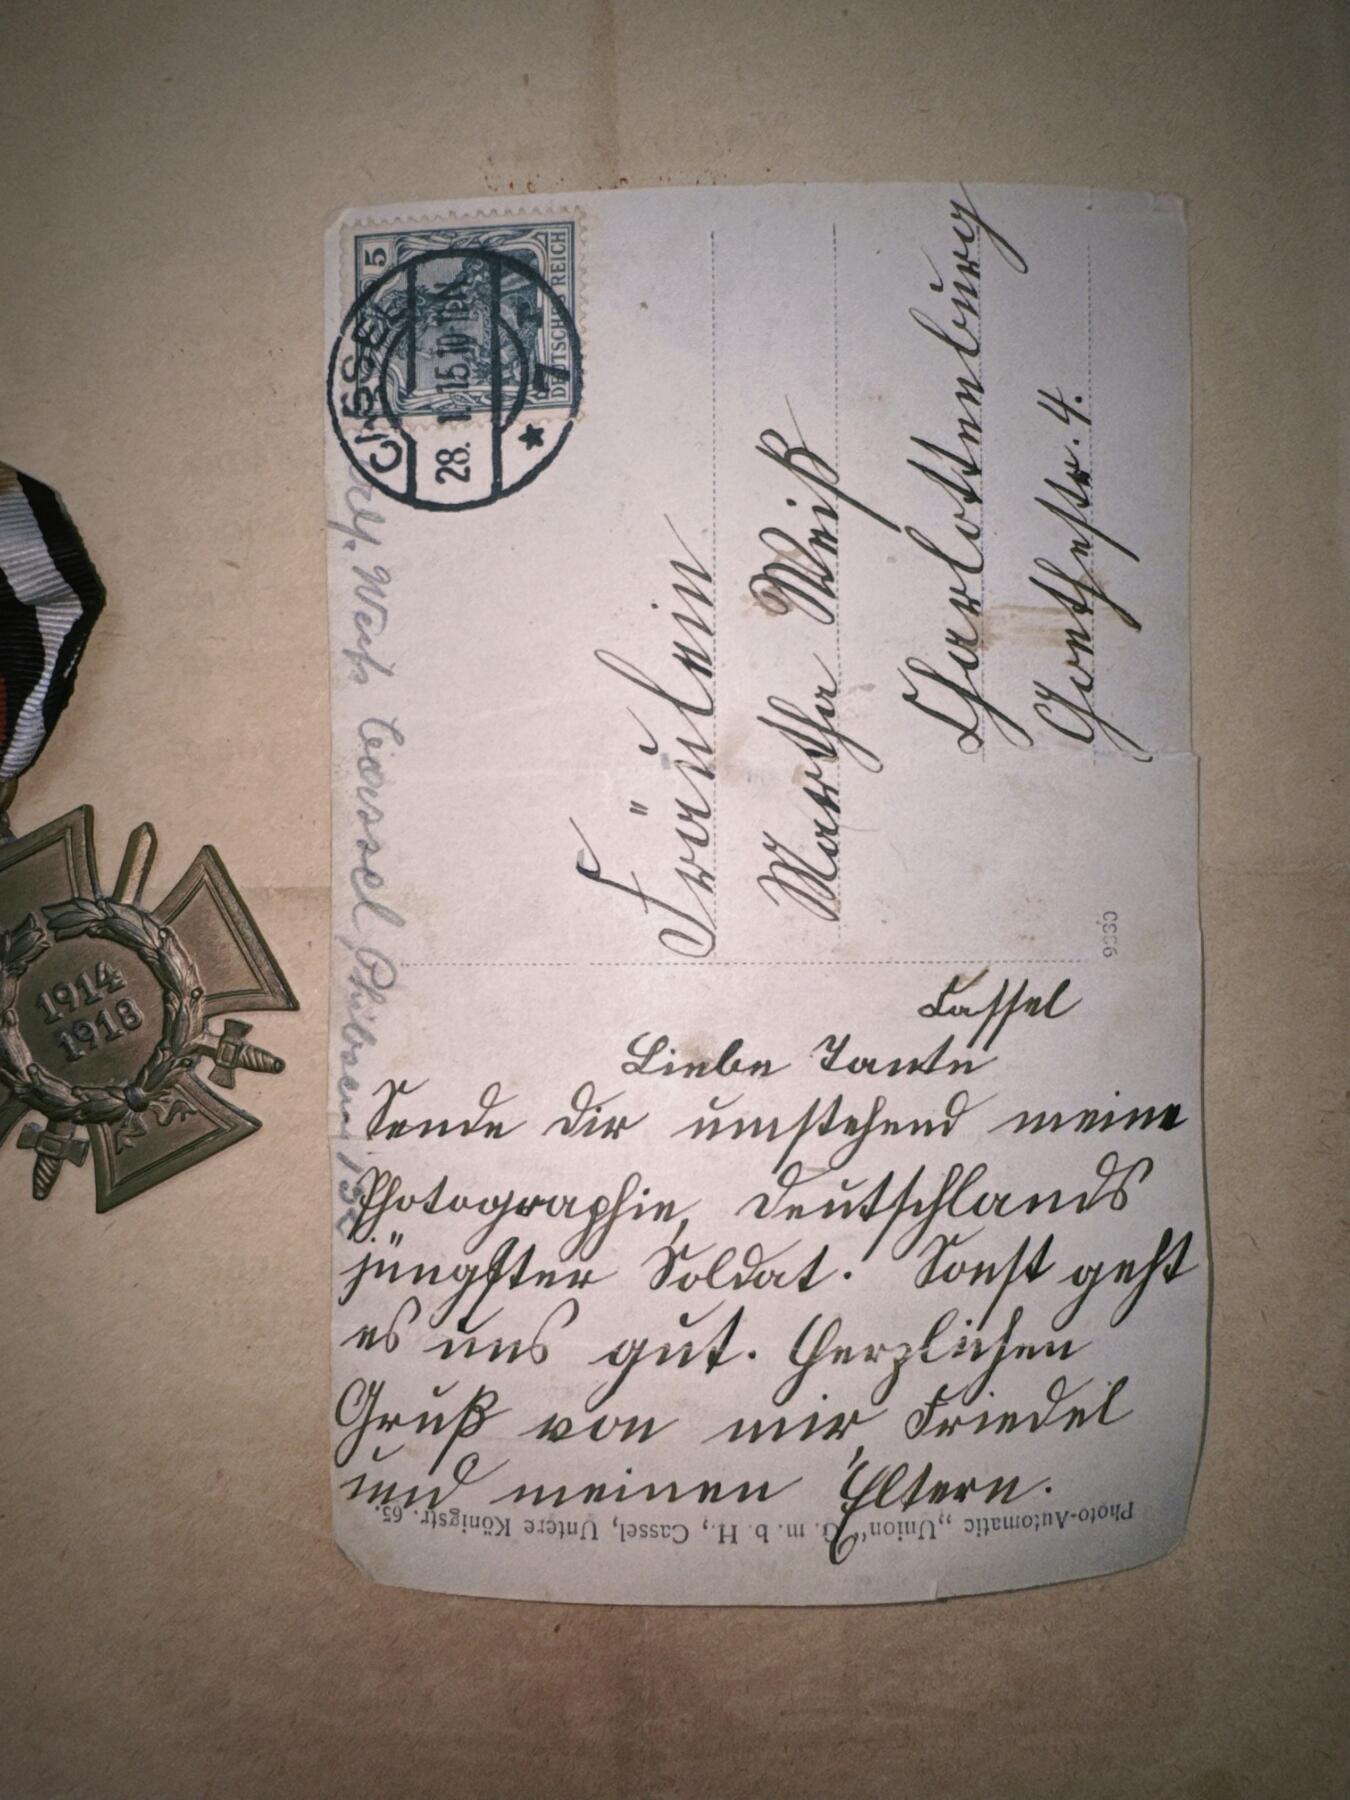 5
DEUTSCHES REICH
CASSEL
28. 15.10-11
Fräulein
Martha Weiß
Charlottenburg
Goethestr. 4.
Cassel
Liebe Tante
Sende dir umstehend meine
Photographie, Deutschlands
jüngster Soldat. Sonst geht
es uns gut. Herzlichen
Gruß von mir Friedel
und meinen Eltern.
Cassel
Photo-Automatic „Union“ G. m. b H., Cassel, Untere Königstr. 65.
1914
1918